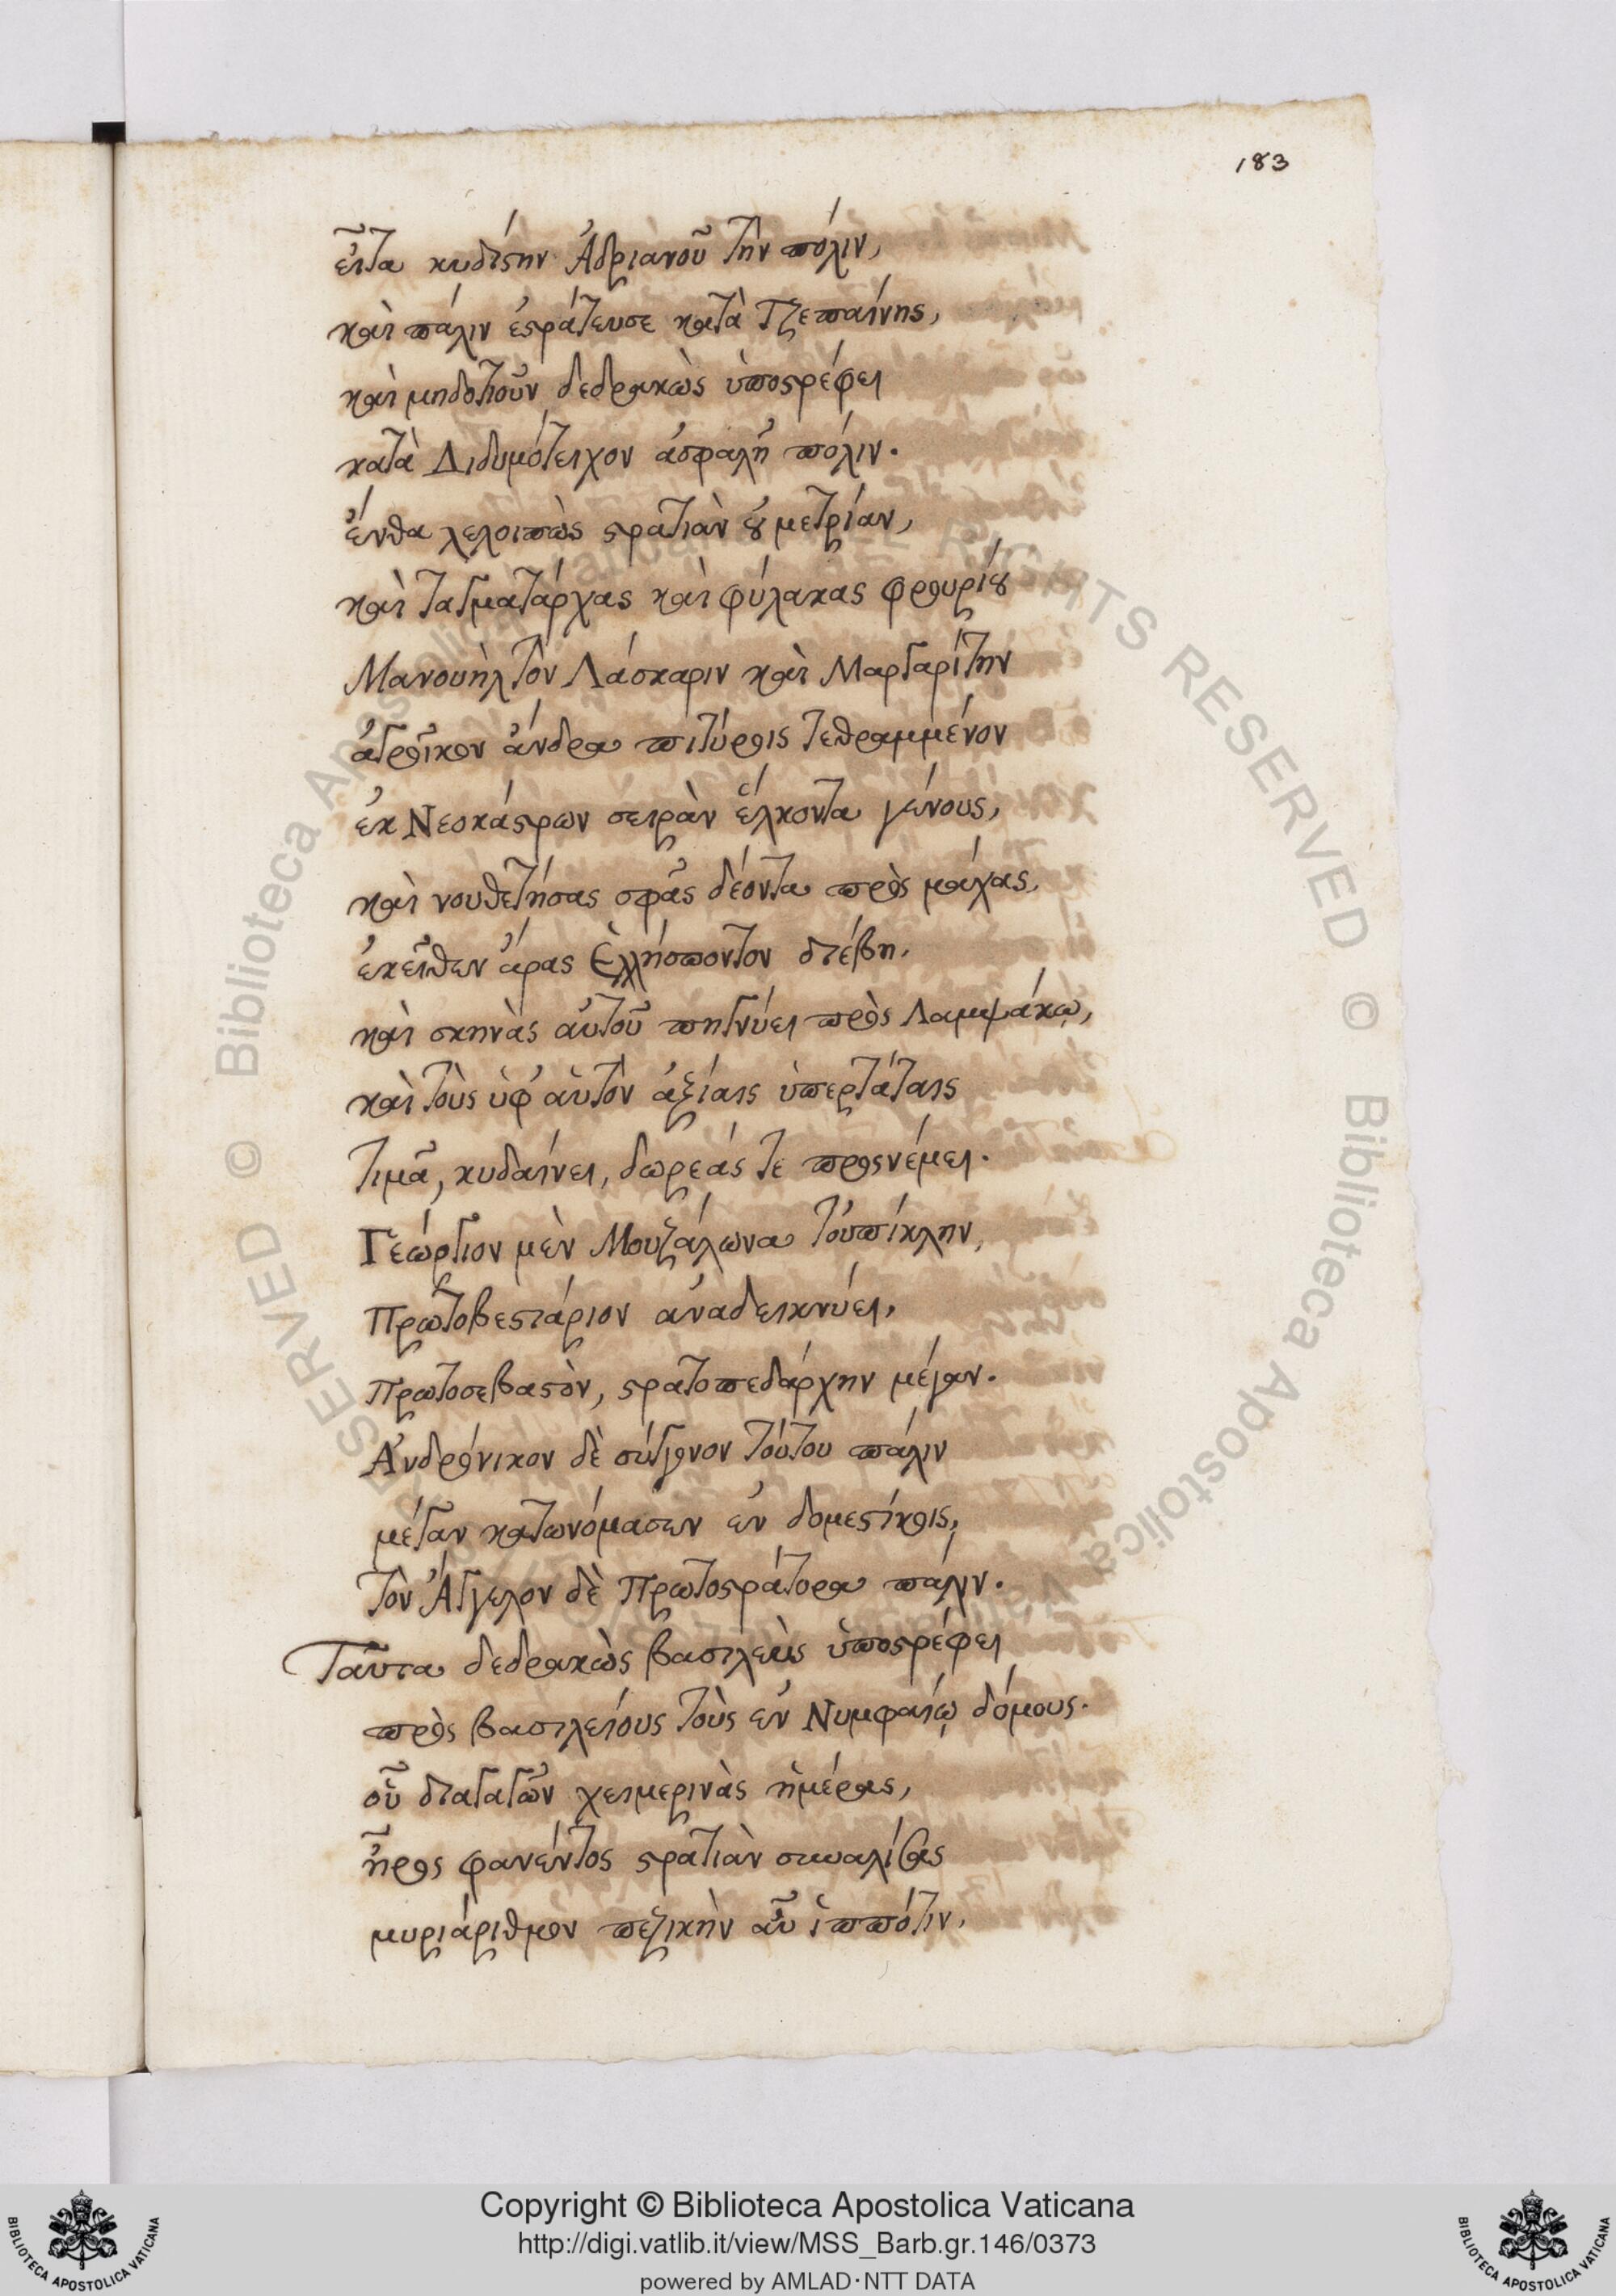 183
εἶτα κυδίστην Ἀδριανοῦ τὴν πόλιν,
καὶ πάλιν ἐστράτευσε κατὰ Τζεπαίνης,
καὶ μηδοτιοῦν δεδρακὼς ὑποστρέφει
κατὰ Διδυμότειχον ἀσφαλῆ πόλιν.
ἔνθα λελοιπὼς στρατιὰν οὐ μετρίαν,
καὶ ταγματάρχας καὶ φύλακας φρουρίου
Μανουὴλ τὸν Λάσκαριν καὶ Μαργαρίτην
ἀγροῖκον ἄνδρα πιτύροις τεθραμμένον
ἐκ Νεοκάστρων σειρὰν ἕλκοντα γένους,
καὶ νουθετήσας σφᾶς δέοντα πρὸς μάχας,
ἐκεῖθεν ἄρας Ἑλλήσποντον διέβη.
καὶ σκηνὰς αὐτοῦ πηγνύει πρὸς Λαμψάκῳ,
καὶ τοὺς ὑφ' αὑτὸν ἀξίαις ὑπερτάταις
τιμᾷ, κυδαίνει, δωρεάς τε προσνέμει.
Γεώργιον μὲν Μουζάλωνα τοὐπίκλην,
πρωτοβεστιάριον ἀναδεικνύει,
πρωτοσεβαστὸν, στρατοπεδάρχην μέγαν.
Ἀνδρόνικον δὲ σύγγονον τούτου πάλιν
μέγαν κατωνόμασεν ἐν δομεστίκοις,
τὸν Ἄγγελον δὲ πρωτοστράτορα πάλιν.
Ταῦτα δεδρακὼς βασιλεὺς ὑποστρέφει
πρὸς βασιλείους τοὺς ἐν Νυμφαίῳ δόμους.
οὗ διαγαγὼν χειμερινὰς ἡμέρας,
ἦρος φανέντος στρατιὰν συναλίσας
μυριάριθμον πεζικὴν αὖ ἱππότιν,
Copyright © Biblioteca Apostolica Vaticana
http://digi.vatlib.it/view/MSS_Barb.gr.146/0373
powered by AMLAD·NTT DATA